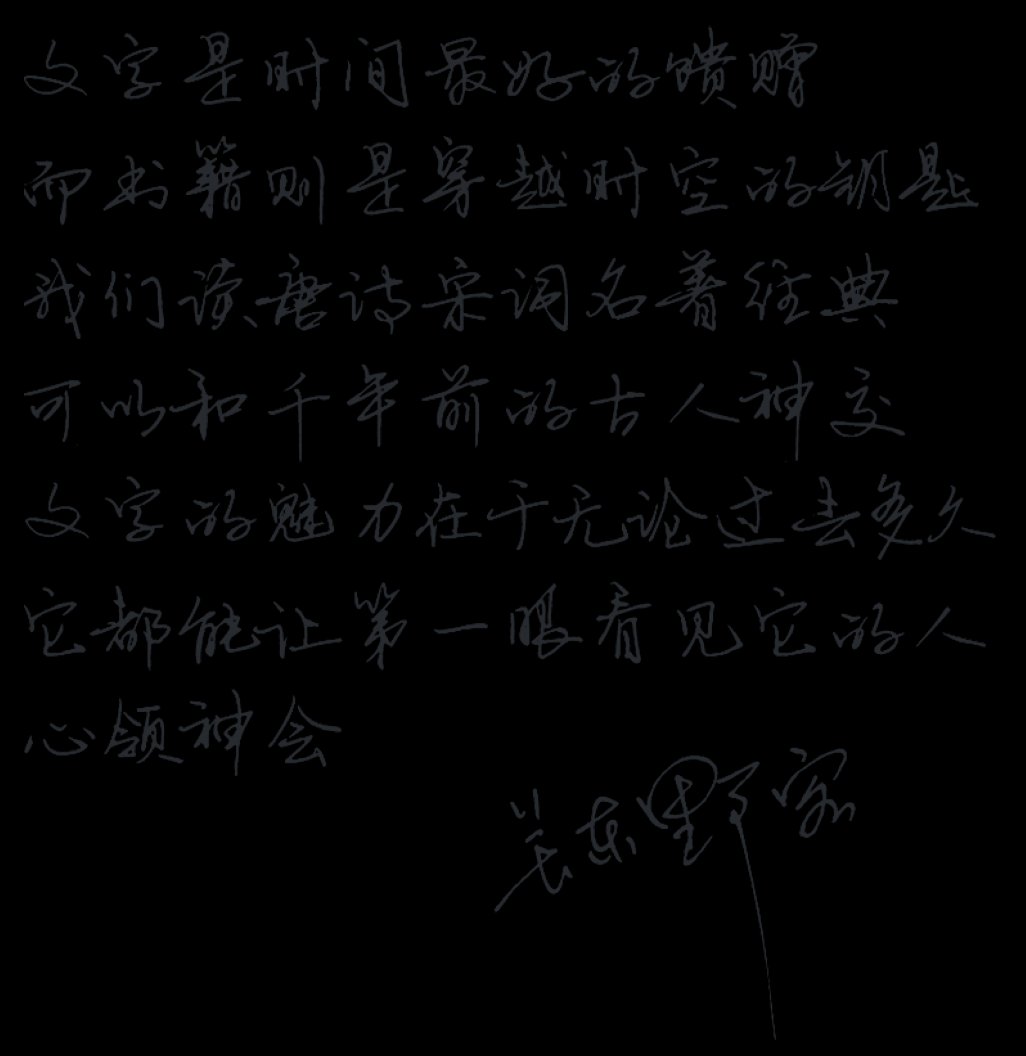 文字是时间最好的馈赠
而书籍则是穿越时空的钥匙
我们读唐诗宋词名著经典
可以和千年前的古人神交
文字的魅力在于无论过去多久
它都能让第一眼看见它的人
心领神会
东野客